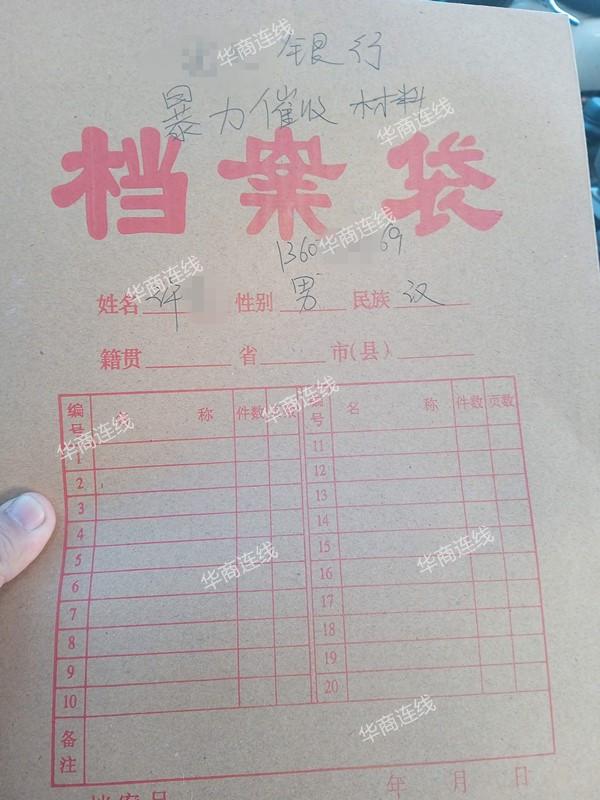 银行
暴力催收材料
档案袋
1360 69
姓名 许 性别 男 民族 汉
籍贯 省 市(县)
编号 名 称 件数 页数 编号 名 称 件数 页数
1 11
2 12
3 13
4 14
5 15
6 16
7 17
8 18
9 19
10 20
备注
年 月 日
华商连线
华商连线
华商连线
华商连线
华商连线
华商连线
华商连线
华商连线
华商连线